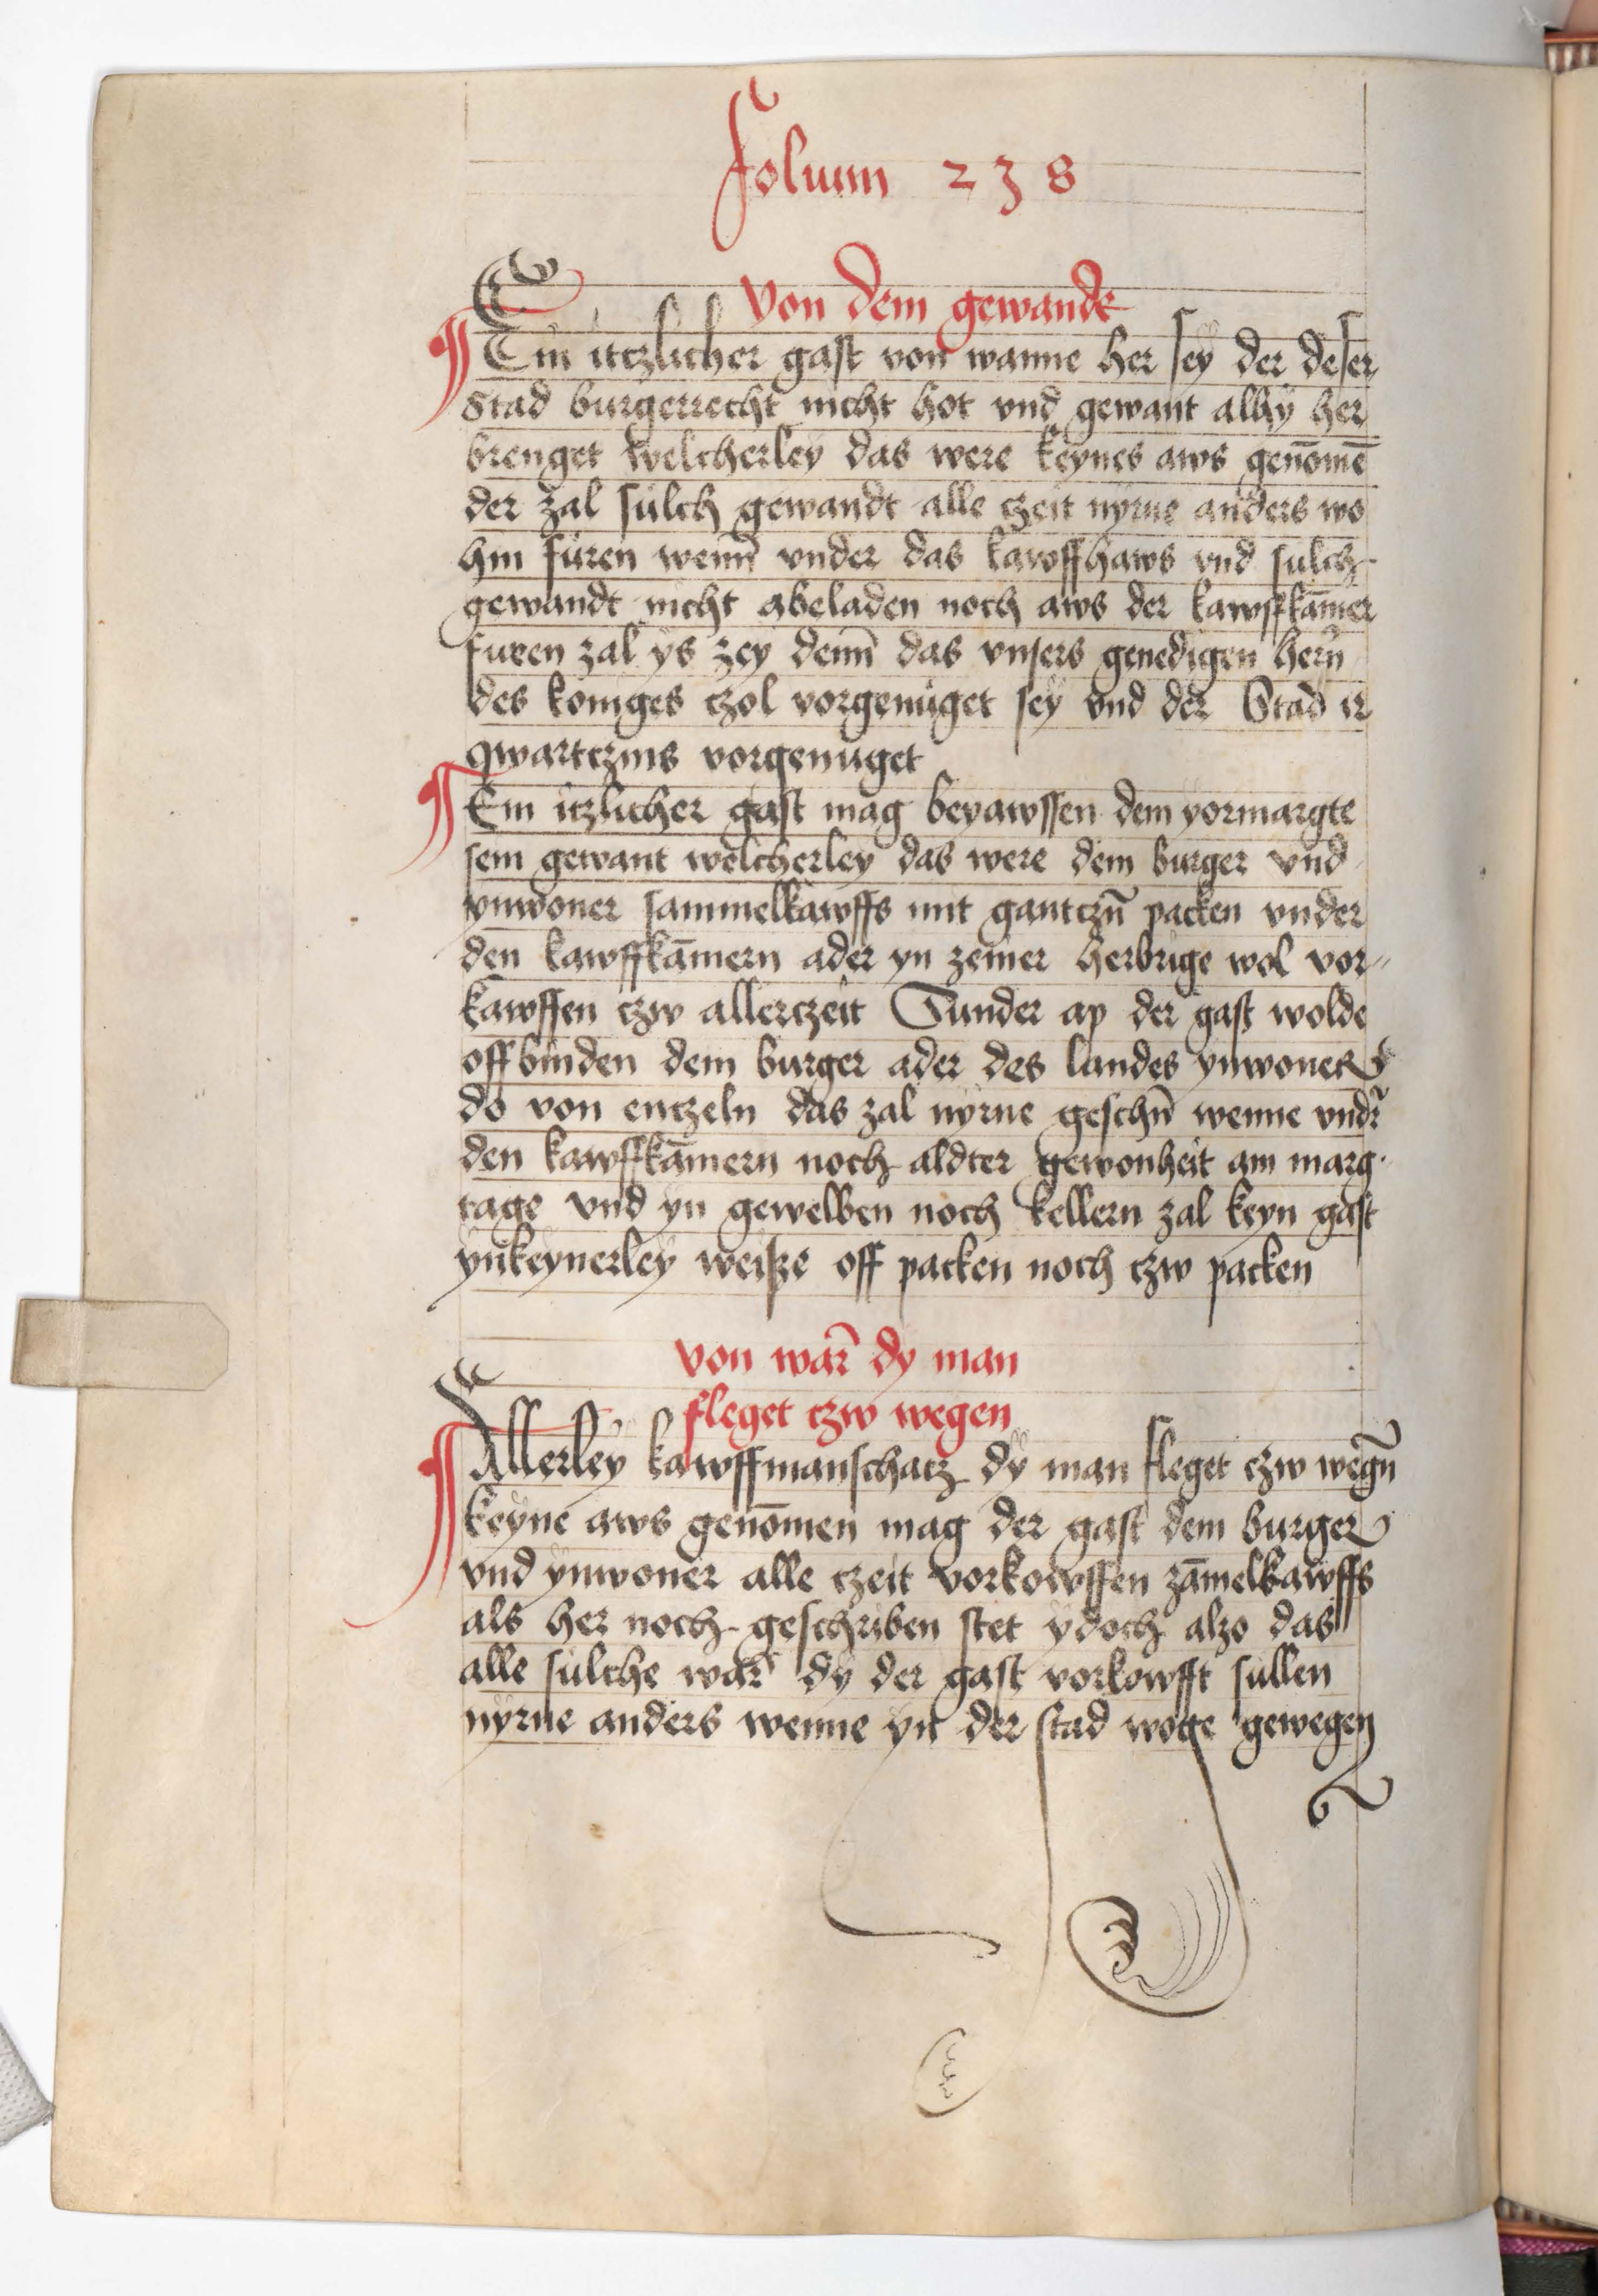 Folium 238
Von dem gewandt
Ein itczlicher gast von wanne her sey der deser
Stad burgerrecht nicht hot vnd gewant alhy her
brenget welcherley das were keynes aws genōmē
der zal sulch gewandt alle czeit nyrne anders wo
hin furen wenn̄ vnder das kawffhaws vnd sulch
gewandt nicht abeladen noch aws der kawffkām̄er
furen zal ys zey denn̄ das vnsers genedigen hern̄
des koniges czol vorgenuget sey vnd der Stad ir
qwartczins vorgenuget
Ein itzlicher gast mag beyawssen dem yormargte
sein gewant welcherley das were dem burger vnd
ynwoner sammelkawffs mit gantczn̄ packen vnder
den kawffkām̄ern ader yn zeiner herbrige wol vor-
kawffen czw allerczeit Sunder ap der gast wolde
off binden dem burger ader des landes ynwoner
do von enczeln das zal nyrne geschn̄ wenne vndr̄
den kawffkām̄ern noch aldter gewonheit am marg
tage vnd yn gewelben noch kellern zal keyn gast
ynkeynerley weisze off packen noch czw packen
von war̄ dy man
fleget czw wegen
Allerley kawffmanschacz dy man fleget czw wegn̄
keyne aws genōmen mag der gast dem burger
vnd ynwoner alle czeit vorkowffen zām̄elkawffs
als her noch geschriben stet ydoch alzo das
alle sulche war̄ dy der gast vorkowfft sullen
nyrne anders wenne yn der stad woge gewegen